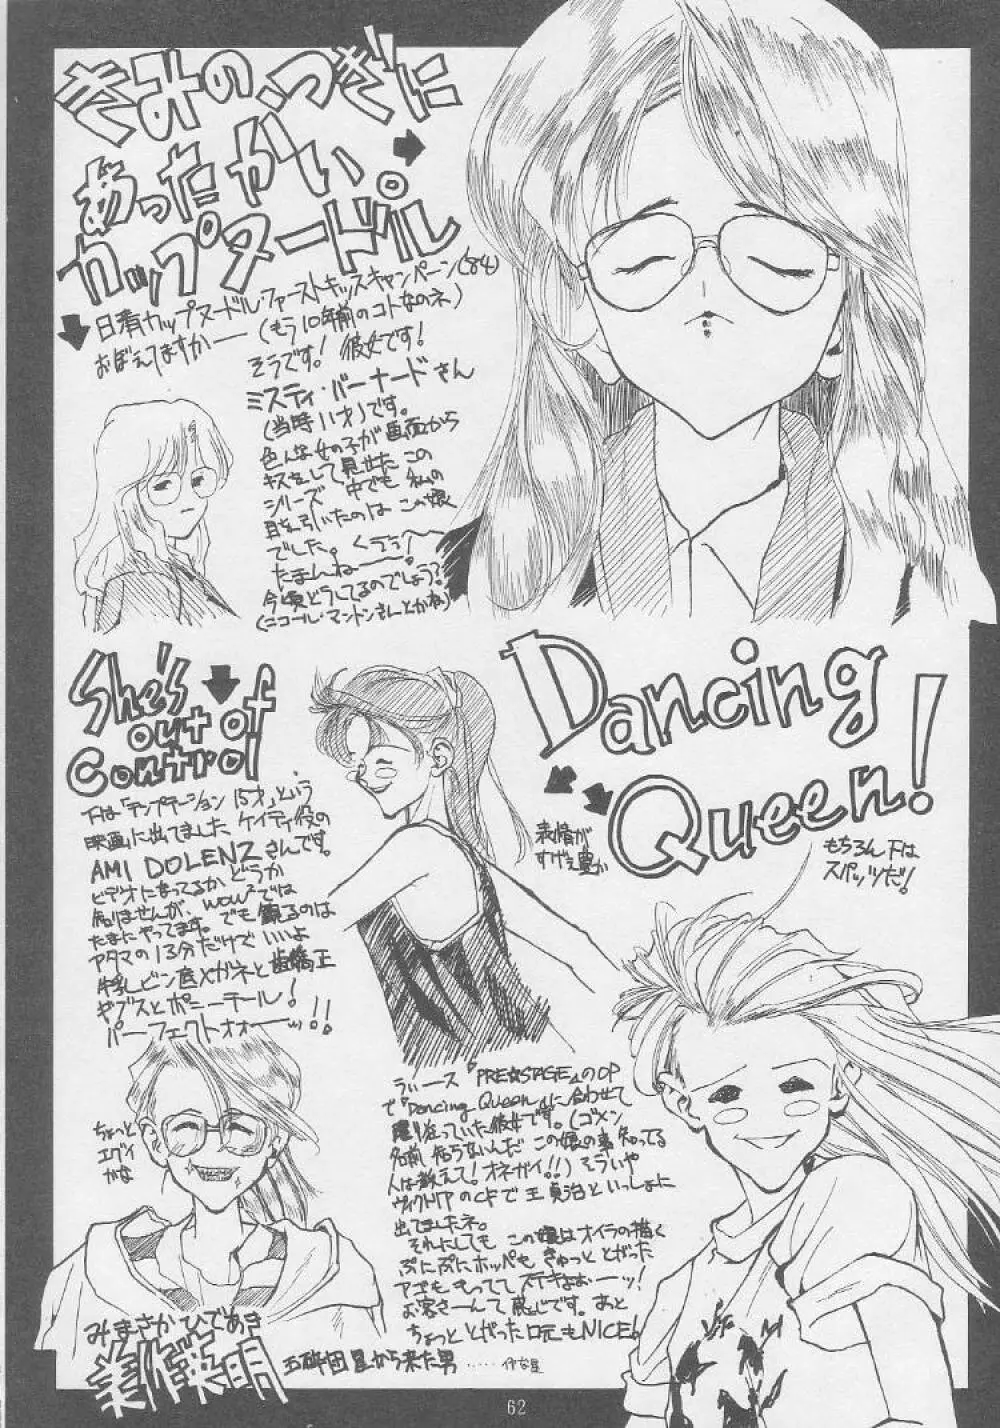 きみの、つぎに
あったかい。
カップヌードル
日清カップヌードル・ファーストキッスキャンペーン(84)
おぼえてますかー(もう10年前のコトなのネ)
そうです! 彼女です!
ミスティ・バーナードさん
(当時11才)です。
色んな女の子が画面から
キスをして見せたこの
シリーズ 中でも私の
目を引いたのはこの娘
でした。くうぅ〜
たまんねー!
今頃どうしてるのでしょう?
(ニコール・マントンさんとかね)
She's
out of
Control
下は「テンプテーション15才」という
映画に出てました ケイティ役の
AMI DOLENZさんです。
ビデオになってるかどうか
知りませんが、WOW²では
たまにやってます。でも観るのは
アタマの13分だけでいいよ
牛乳ビン底メガネと歯矯正
ギブスとポニーテール!
パーフェクトォォーッ!!
ちょっと
エグイ
かな
Dancing
Queen!
表情が
すげぇ豊か
もちろん下は
スパッツだ!
うぃース「PRE☆STAGE」のOP
で「Dancing Queen」に合わせて
踊り狂っていた彼女です。(ゴメン
名前知らないんだ この娘の事知ってる
人は教えて!オネガイ!!)そういや
ヴィクトリアのCFで王貞治といっしょに
出てましたネ。
それにしても この娘はオイラの描く
ぷにぷにホッペも きゅっととがった
アゴも もってて ステキよぉーッ!
お客さーんて感じです。あと
ちょっととがった口元もNICE!
みまさかひであき
美作英明
五砕団星から来た男
62